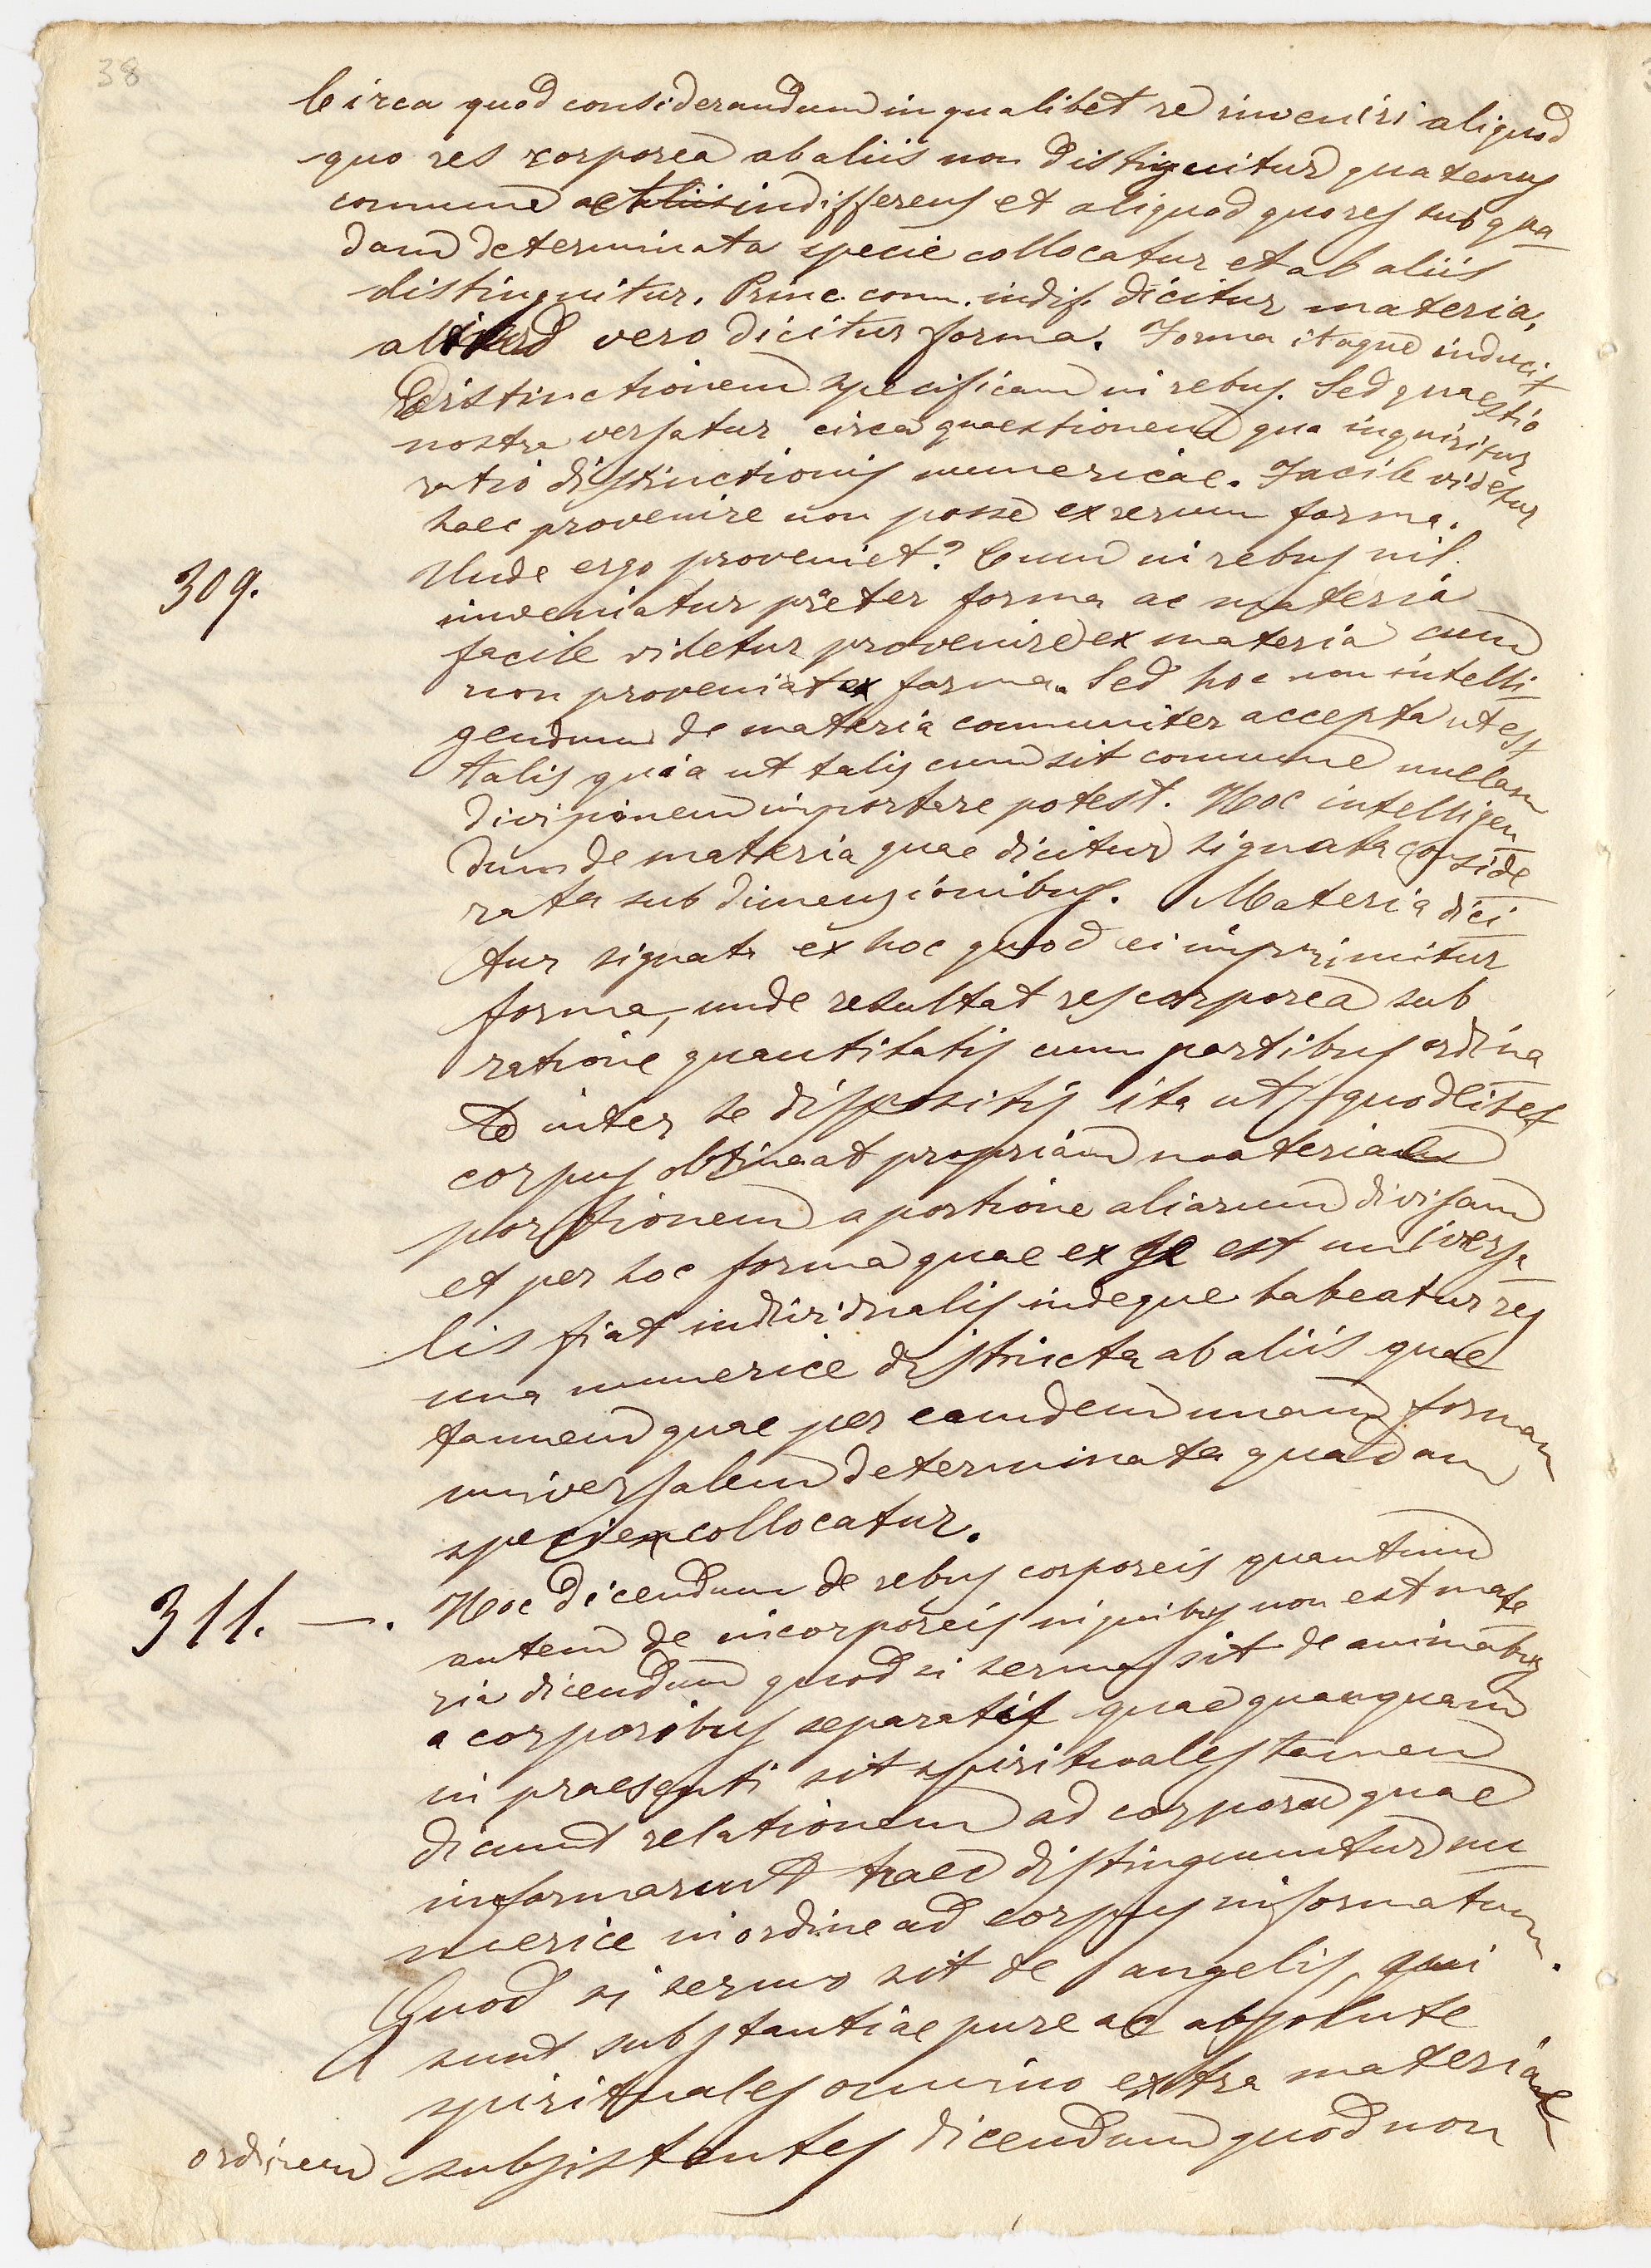 38
Circa quod considerandum in qualibet re inveniri aliquod
quo res corporea ab aliis non distiguitur quatenus
comune ac aliis indifferens et aliquod quo res sub qua
dam determinata specie collocatur et ab aliis
distinguitur. Princ. com. indif. dicitur materia,
vero dicitur forma. Forma itaque inducit
distinctionem specificam in rebus. Sed quaestio
nostra versatur circa quaestionem qua inquiritur
ratio distinctionis numericae. Facile videtur
haec provenire non posse ex rerum forma.
309.
Unde ergo proveniet? Cum in rebus nil
inveniatur praeter forma ac materia
facile videtur provenire ex materia cum
non proveniat ex forma. Sed hoc non intelli
gendum de materia communiter accepta ut est
talis quia ut talis cum sit comune nullam
divisionem importare potest. Hoc intelligen
dum de materia quae dicitur signata conside
rata sub dimensionibus. Materia dici
tur signata ex hoc quod ei imprimitur
forma, unde resultat res corporea sub
ratione quantitatis cum partibus ordina
te inter se dispositis ita ut quodlibet
corpus obtineat propriam materiae
portionem a portione aliarum divisam
et per hoc forma quae ex se est universa
lis fiat individualis indeque habeatur res
una numerice distincta ab aliis quae
tamen quae per eamdem unam formam
universalem determinata quadam
specie collocatur.
311. —.
Hoc dicendum de rebus corporeis quantum
autem de incorporeis in quibus non est mate
ria dicendum quod si sermo sit de animabus
a corporibus separatis quae quamquam
in praesenti sit spirituales tamen
dicunt relationem ad corpora quae
informarunt haec distinguuntur nu
merice in ordine ad corpus informatum.
Quod si sermo sit de angelis qui
sunt substantiae pure ac absolute
spirituales omnino extra materiae
ordinem subsistentes dicendum quod non